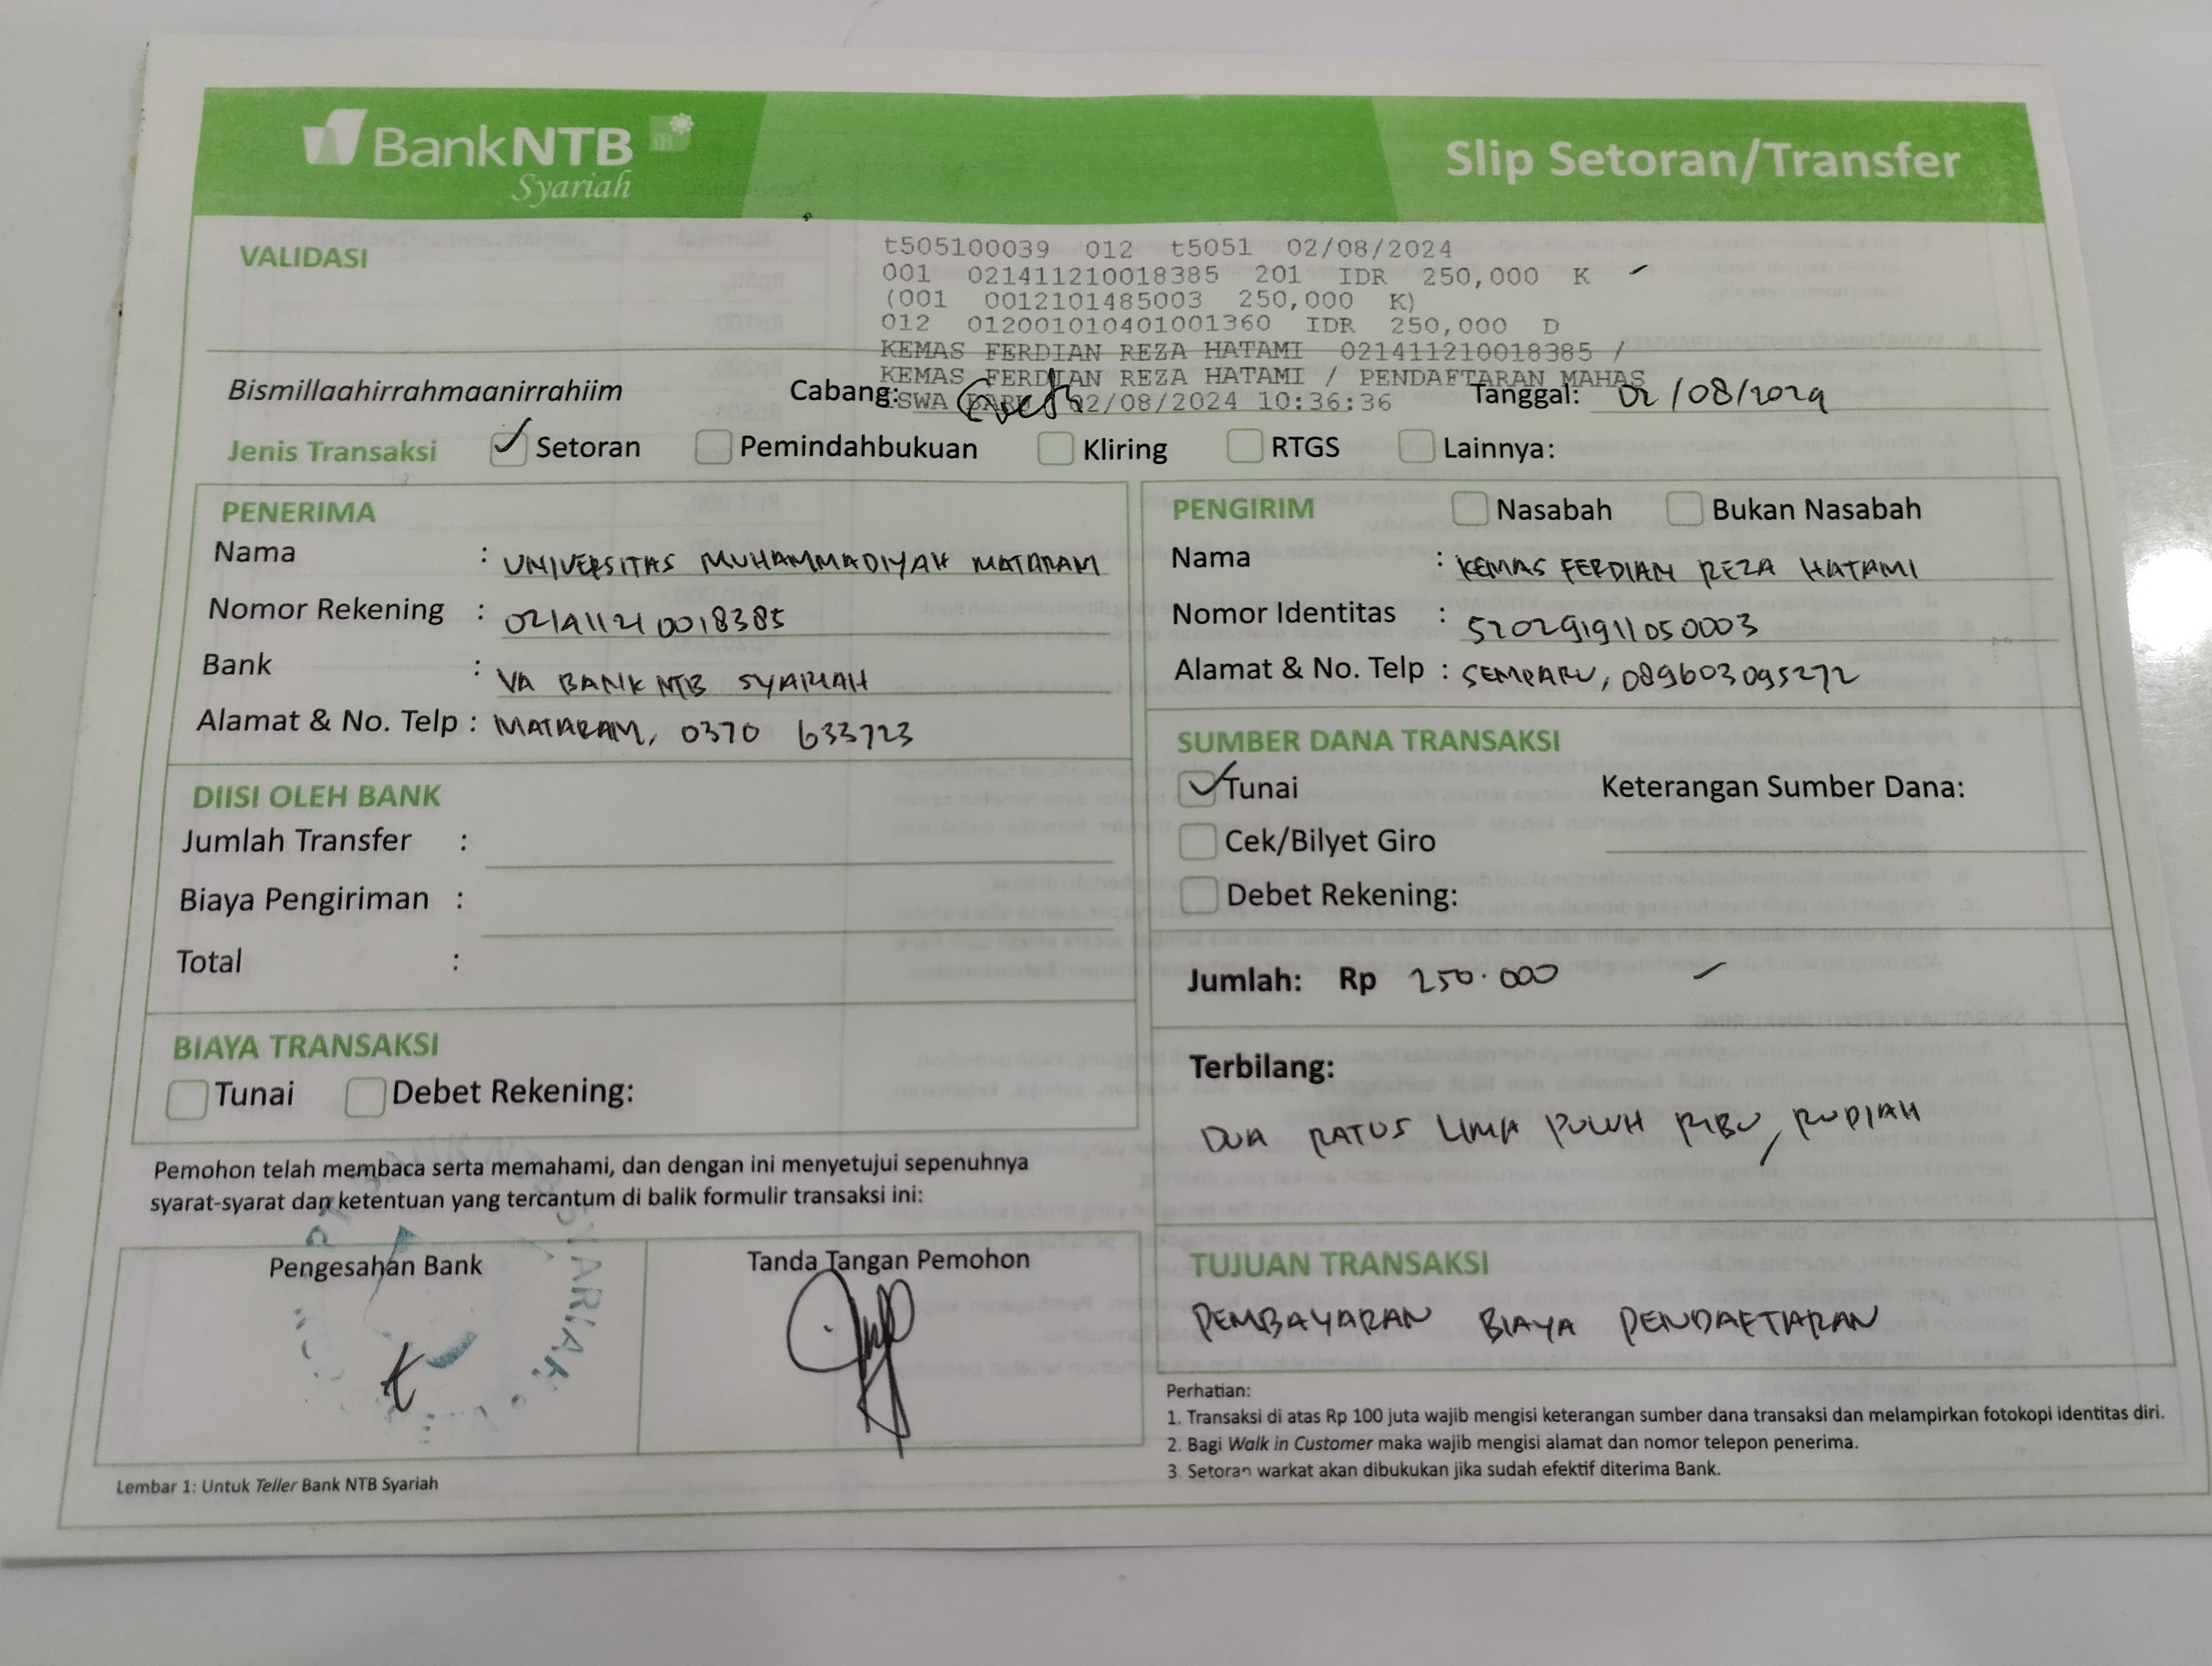 BankNTB
Syariah
Slip Setoran/Transfer
VALIDASI
t505100039 012 t5051 02/08/2024
001 021411210018385 201 IDR 250,000 K
(001 0012101485003 250,000 K)
012 012001010401001360 IDR 250,000 D
KEMAS FERDIAN REZA HATAMI 021411210018385 /
KEMAS FERDIAN REZA HATAMI / PENDAFTARAN MAHAS
ISWA BARU 02/08/2024 10:36:36
Bismillaahirrahmaanirrahiim Cabang: Tanggal: 02/08/2024
Jenis Transaksi Setoran Pemindahbukuan Kliring RTGS Lainnya:
PENERIMA
Nama : UNIVERSITAS MUHAMMADIYAH MATARAM
Nomor Rekening : 021411210018385
Bank : VA BANK NTB SYARIAH
Alamat & No. Telp : MATARAM, 0370 633723
DIISI OLEH BANK
Jumlah Transfer :
Biaya Pengiriman :
Total :
BIAYA TRANSAKSI
Tunai Debet Rekening:
Pemohon telah membaca serta memahami, dan dengan ini menyetujui sepenuhnya
syarat-syarat dan ketentuan yang tercantum di balik formulir transaksi ini:
Pengesahan Bank Tanda Tangan Pemohon
SYARIAH
Lembar 1: Untuk Teller Bank NTB Syariah
PENGIRIM Nasabah Bukan Nasabah
Nama : KEMAS FERDIAN REZA HATAMI
Nomor Identitas : 520291911050003
Alamat & No. Telp : 089603095272
SUMBER DANA TRANSAKSI
Tunai Keterangan Sumber Dana:
Cek/Bilyet Giro
Debet Rekening:
Jumlah: Rp 250.000
Terbilang:
DUA RATUS LIMA PULUH RIBU, RUPIAH
TUJUAN TRANSAKSI
PEMBAYARAN BIAYA PENDAFTARAN
Perhatian:
1. Transaksi di atas Rp 100 juta wajib mengisi keterangan sumber dana transaksi dan melampirkan fotokopi identitas diri.
2. Bagi Walk in Customer maka wajib mengisi alamat dan nomor telepon penerima.
3. Setoran warkat akan dibukukan jika sudah efektif diterima Bank.